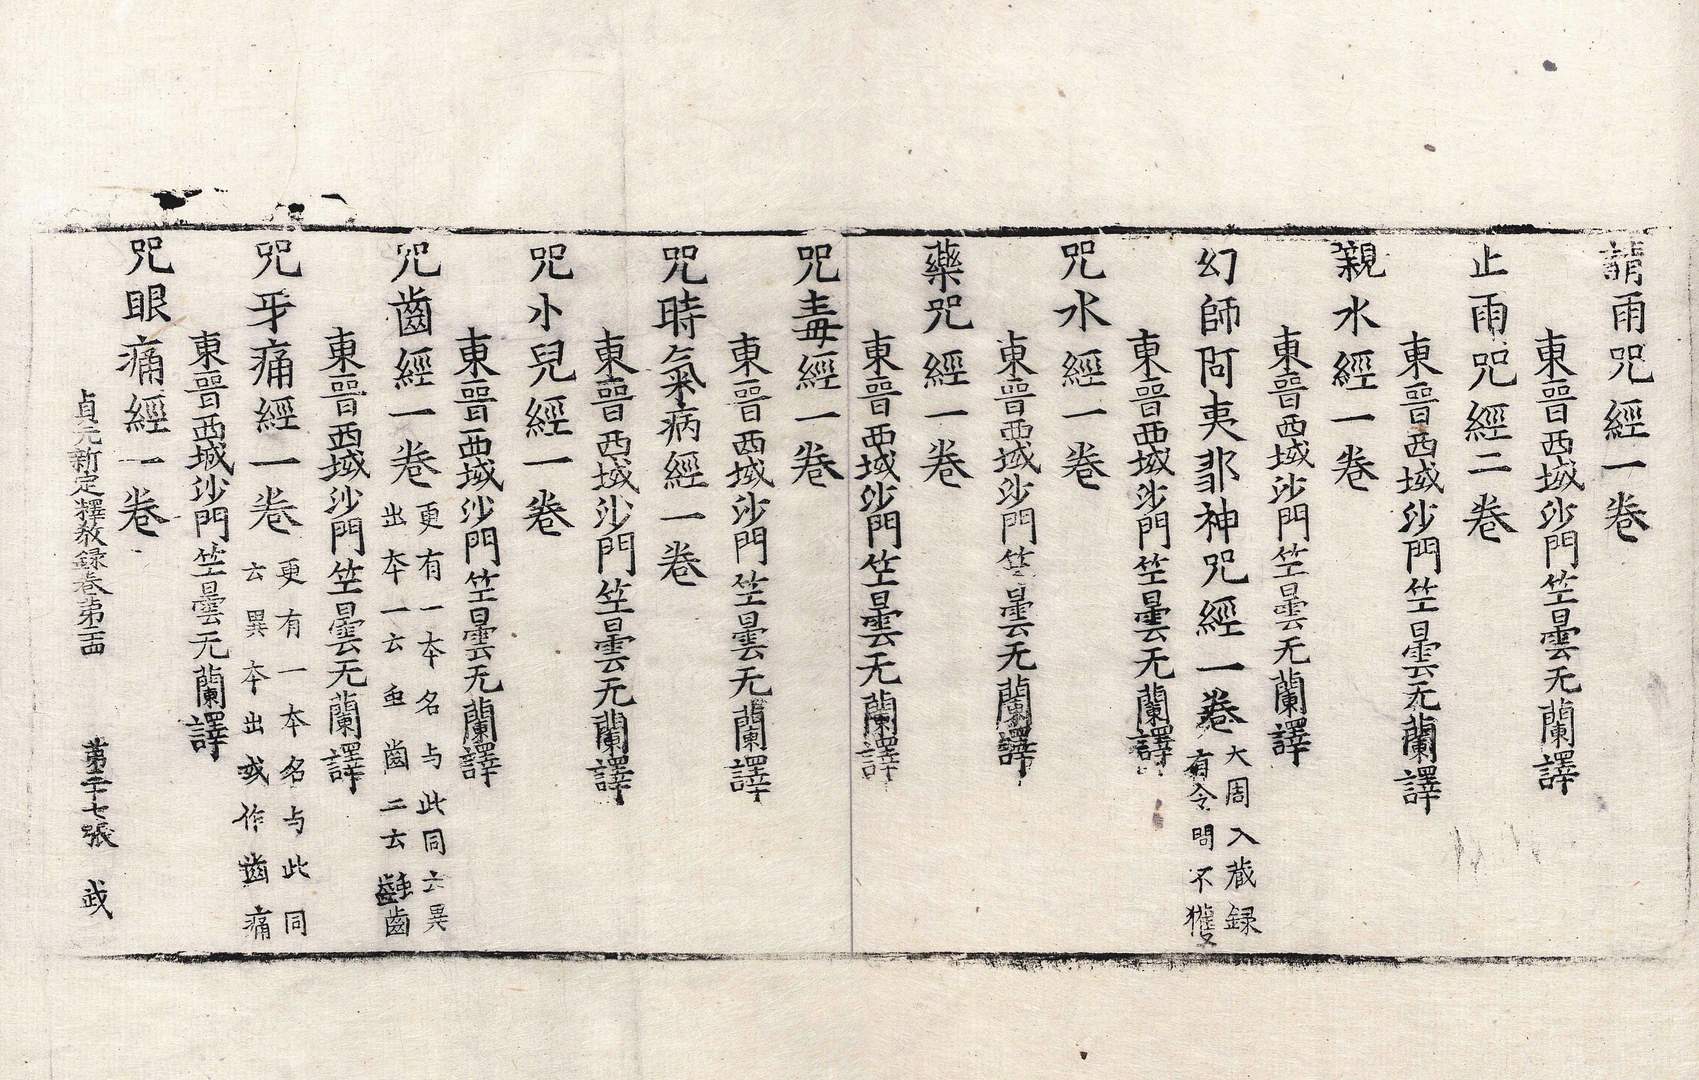 請雨咒經一卷
東晉西域沙門竺曇无蘭譯
止雨咒經二卷
東晉西域沙門竺曇无蘭譯
親水經一卷
東晉西域沙門竺曇无蘭譯
幻師阿夷鄒神咒經一卷 大周入藏録
有令問不獲
東晉西域沙門竺曇无蘭譯
咒水經一卷
東晉西域沙門竺曇无蘭譯
藥咒經一卷
東晉西域沙門竺曇无蘭譯
咒毒經一卷
東晉西域沙門竺曇无蘭譯
咒時氣病經一卷
東晉西域沙門竺曇无蘭譯
咒小兒經一卷
東晉西域沙門竺曇无蘭譯
咒齒經一卷 更有一本名与此同云異
出本一云虫齒二云齲齒
東晉西域沙門竺曇无蘭譯
咒牙痛經一卷 更有一本名与此同
云異本出或作齒痛
東晉西域沙門竺曇无蘭譯
咒眼痛經一卷
貞元新定釋教録卷第二十四 第二十七張 武